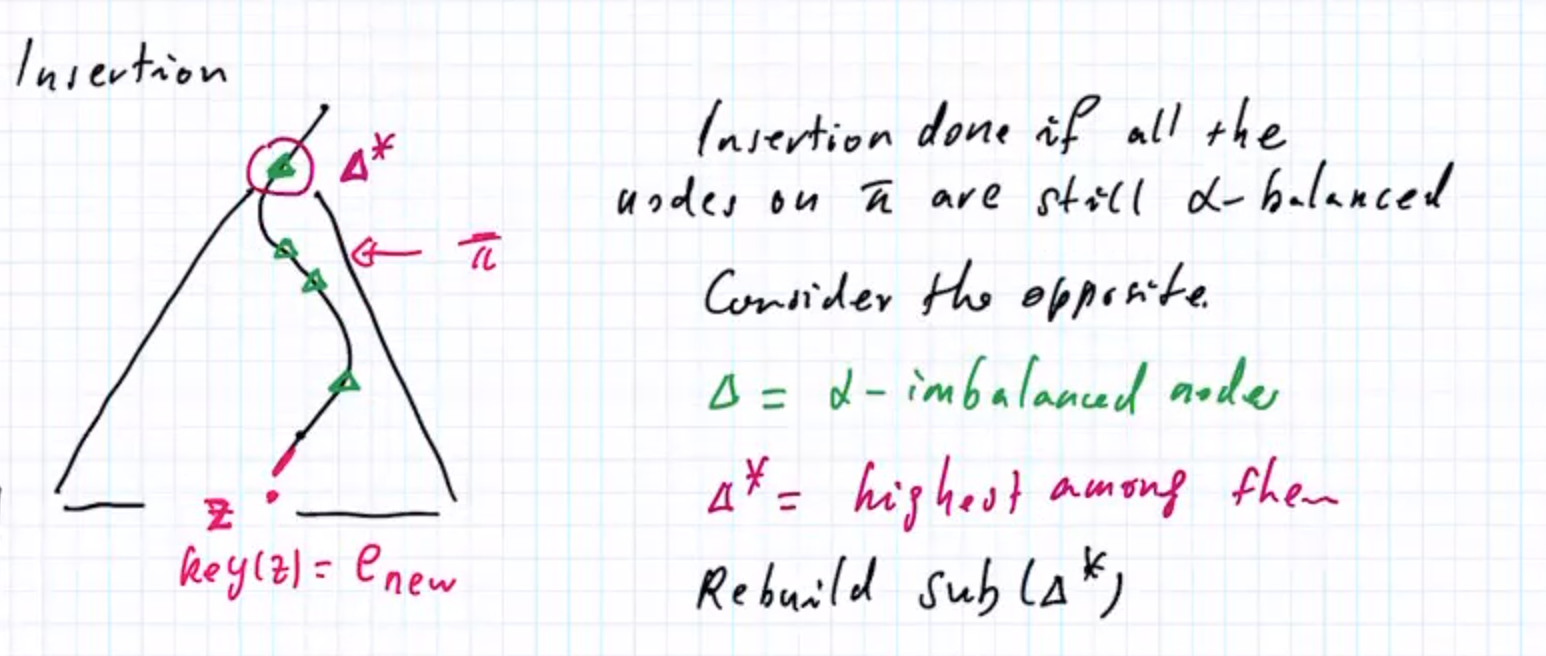 Insertion
Δ*
π
z
key(z) = e_new
Insertion done if all the
nodes on π are still α-balanced
Consider the opposite.
Δ = α-imbalanced nodes
Δ* = highest among them
Rebuild sub(Δ*)